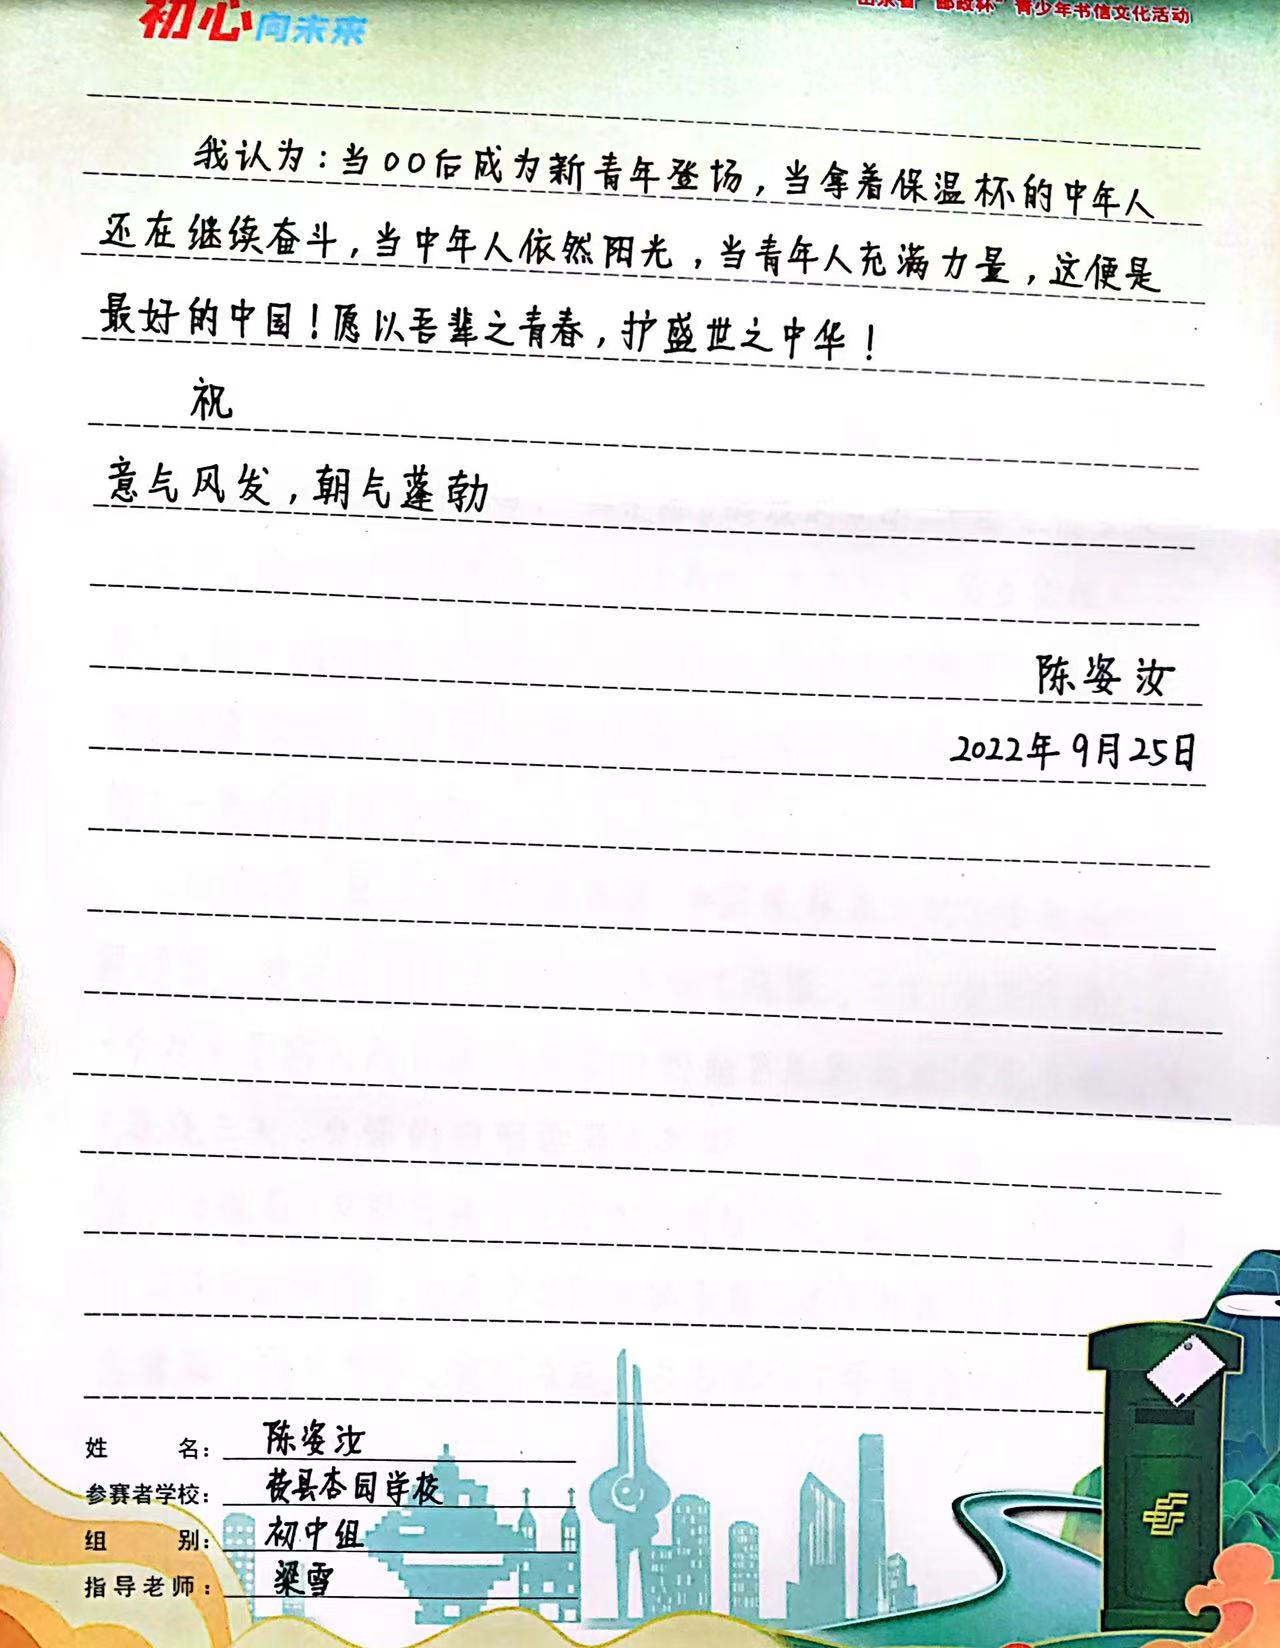 初心向未来
山东省“邮政杯”青少年书信文化活动
我认为：当00后成为新青年登场，当拿着保温杯的中年人
还在继续奋斗，当中年人依然阳光，当青年人充满力量，这便是
最好的中国！愿以吾辈之青春，护盛世之中华！
祝
意气风发，朝气蓬勃
陈姿汝
2022年9月25日
姓 名：陈姿汝
参赛者学校：莰县杏园学校
组 别：初中组
指导老师：梁雪